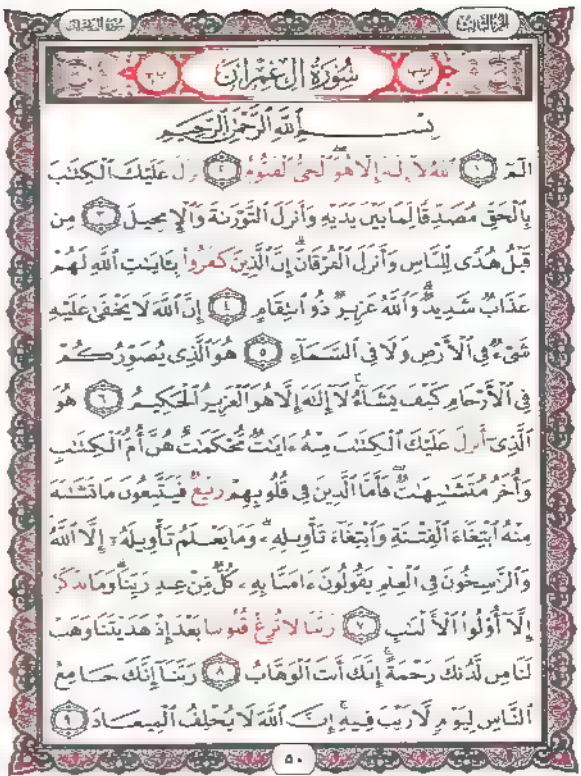 سُورَةُ آلِ عِمْرَانَ
الجزء الثالث
سُورَةُ آلِ عِمْرَانَ
بِسْمِ ٱللَّهِ ٱلرَّحْمَٰنِ ٱلرَّحِيمِ
الٓمٓ ١ ٱللَّهُ لَآ إِلَٰهَ إِلَّا هُوَ ٱلْحَىُّ ٱلْقَيُّومُ ٢ نَزَّلَ عَلَيْكَ ٱلْكِتَٰبَ
بِٱلْحَقِّ مُصَدِّقًا لِّمَا بَيْنَ يَدَيْهِ وَأَنزَلَ ٱلتَّوْرَىٰةَ وَٱلْإِنجِيلَ ٣ مِن
قَبْلُ هُدًى لِّلنَّاسِ وَأَنزَلَ ٱلْفُرْقَانَ ۗ إِنَّ ٱلَّذِينَ كَفَرُوا۟ بِـَٔايَٰتِ ٱللَّهِ لَهُمْ
عَذَابٌ شَدِيدٌ ۗ وَٱللَّهُ عَزِيزٌ ذُو ٱنتِقَامٍ ٤ إِنَّ ٱللَّهَ لَا يَخْفَىٰ عَلَيْهِ
شَىْءٌ فِى ٱلْأَرْضِ وَلَا فِى ٱلسَّمَآءِ ٥ هُوَ ٱلَّذِى يُصَوِّرُكُمْ
فِى ٱلْأَرْحَامِ كَيْفَ يَشَآءُ ۚ لَآ إِلَٰهَ إِلَّا هُوَ ٱلْعَزِيزُ ٱلْحَكِيمُ ٦ هُوَ
ٱلَّذِىٓ أَنزَلَ عَلَيْكَ ٱلْكِتَٰبَ مِنْهُ ءَايَٰتٌ مُّحْكَمَٰتٌ هُنَّ أُمُّ ٱلْكِتَٰبِ
وَأُخَرُ مُتَشَٰبِهَٰتٌ ۖ فَأَمَّا ٱلَّذِينَ فِى قُلُوبِهِمْ زَيْغٌ فَيَتَّبِعُونَ مَا تَشَٰبَهَ
مِنْهُ ٱبْتِغَآءَ ٱلْفِتْنَةِ وَٱبْتِغَآءَ تَأْوِيلِهِۦ ۗ وَمَا يَعْلَمُ تَأْوِيلَهُۥٓ إِلَّا ٱللَّهُ ۗ
وَٱلرَّٰسِخُونَ فِى ٱلْعِلْمِ يَقُولُونَ ءَامَنَّا بِهِۦ كُلٌّ مِّنْ عِندِ رَبِّنَا ۗ وَمَا يَذَّكَّرُ
إِلَّآ أُو۟لُوا۟ ٱلْأَلْبَٰبِ ٧ رَبَّنَا لَا تُزِغْ قُلُوبَنَا بَعْدَ إِذْ هَدَيْتَنَا وَهَبْ
لَنَا مِن لَّدُنكَ رَحْمَةً ۚ إِنَّكَ أَنتَ ٱلْوَهَّابُ ٨ رَبَّنَآ إِنَّكَ جَامِعُ
ٱلنَّاسِ لِيَوْمٍ لَّا رَيْبَ فِيهِ ۚ إِنَّ ٱللَّهَ لَا يُخْلِفُ ٱلْمِيعَادَ ٩
٥٠